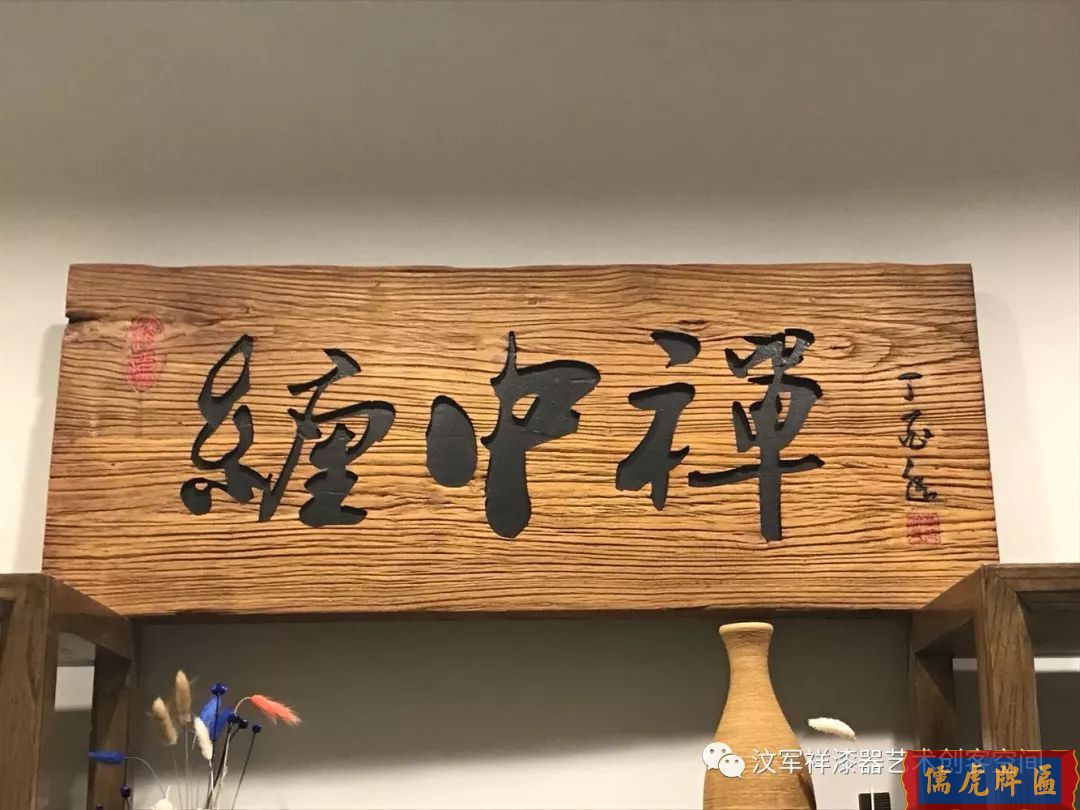 纏中禪
汶军祥漆器艺术创客空间
儒虎牌匾